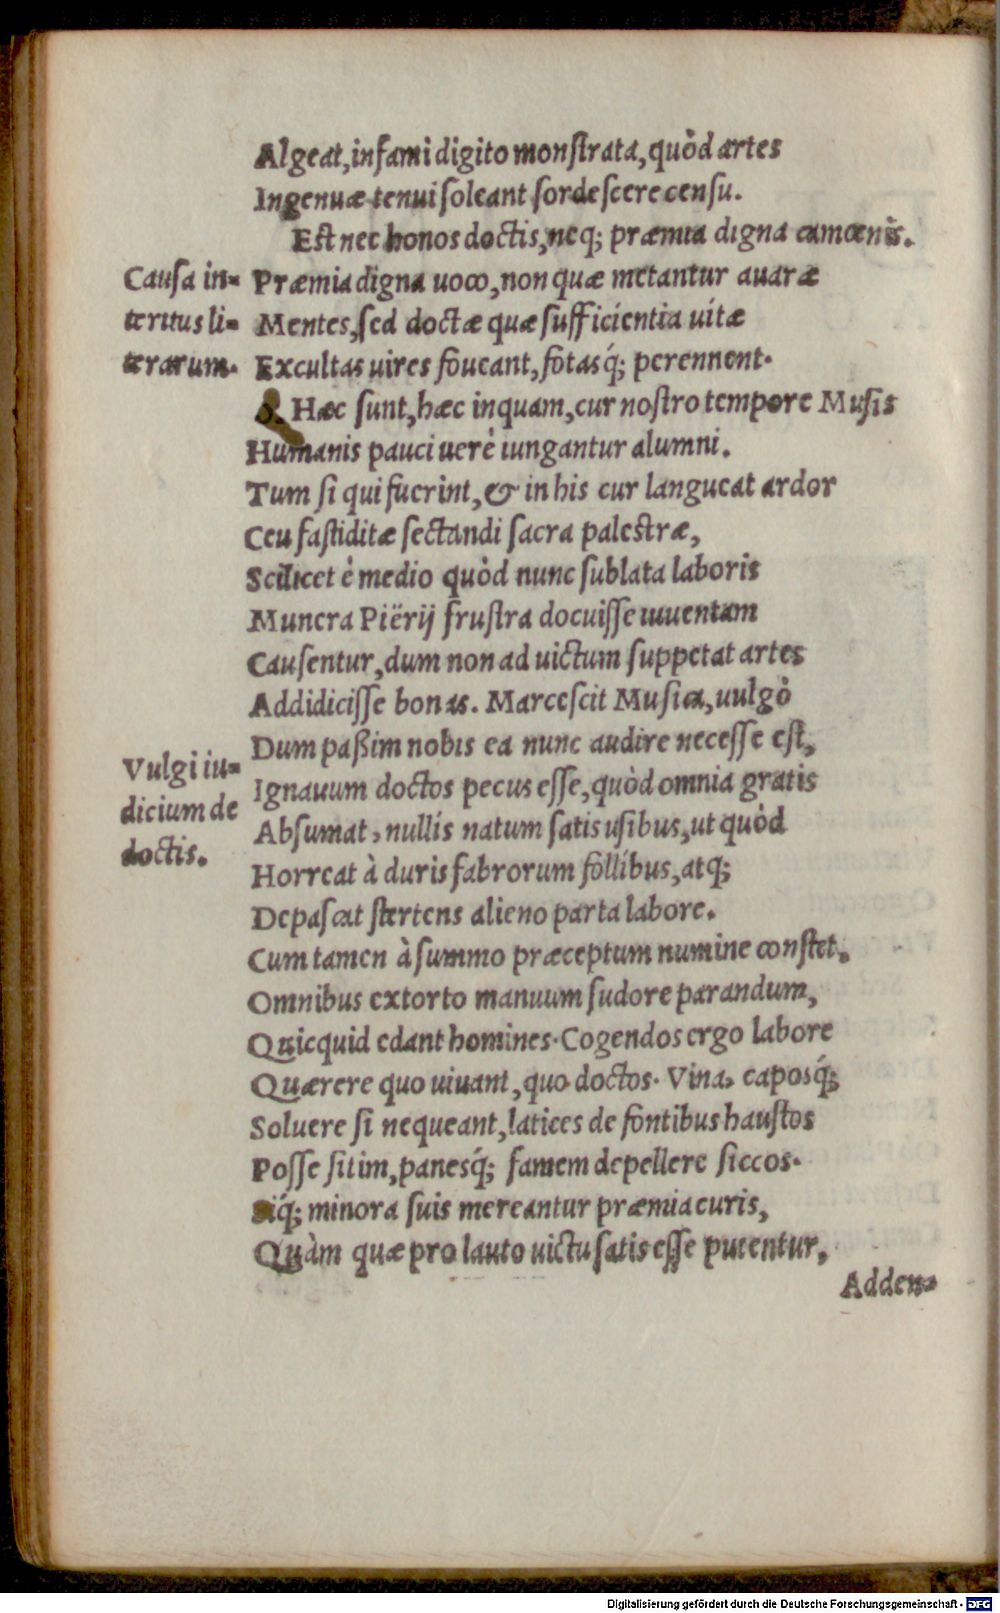 Algeat, infami digito monſtrata, quòd artes
Ingenuæ tenui ſoleant ſordeſcere cenſu.
Eſt nec honos doctis, neq; præmia digna camœnis.
Causa in=
teritus li=
terarum.
Præmia digna uoco, non quæ metantur auaræ
Mentes, ſed doctæ quæ ſufficientia uitæ
Excultas uires foueant, fotasq́; perennent.
Hæc ſunt, hæc inquam, cur noſtro tempore Muſis
Humanis pauci uerè iungantur alumni.
Tum ſi qui fuerint, & in his cur langueat ardor
Ceu faſtiditæ ſectandi ſacra paleſtræ,
Scilicet è medio quòd nunc ſublata laboris
Munera Piërij fruſtra docuiſſe iuuentam
Cauſentur, dum non ad uictum ſuppetat artes
Addidiciſſe bonas. Marceſcit Muſica, uulgò
Vulgi iu=
dicium de
doctis.
Dum paßim nobis ea nunc audire neceſſe eſt,
Ignauum doctos pecus eſſe, quòd omnia gratis
Abſumat, nullis natum ſatis uſibus, ut quòd
Horreat à duris fabrorum follibus, atq;
Depaſcat ſtertens alieno parta labore.
Cum tamen à ſummo præceptum numine conſtet.
Omnibus extorto manuum ſudore parandum,
Quicquid edant homines. Cogendos ergo labore
Quærere quo uiuant, quo doctos. Vina, caposq́;
Soluere ſi nequeant, latices de fontibus hauſtos
Poſſe ſitim, panesq́; famem depellere ſiccos.
Siq́; minora ſuis mereantur præmia curis,
Quàm quæ pro lauto uictu ſatis eſſe putentur,
Adden=
Digitalisierung gefördert durch die Deutsche Forschungsgemeinschaft - DFG